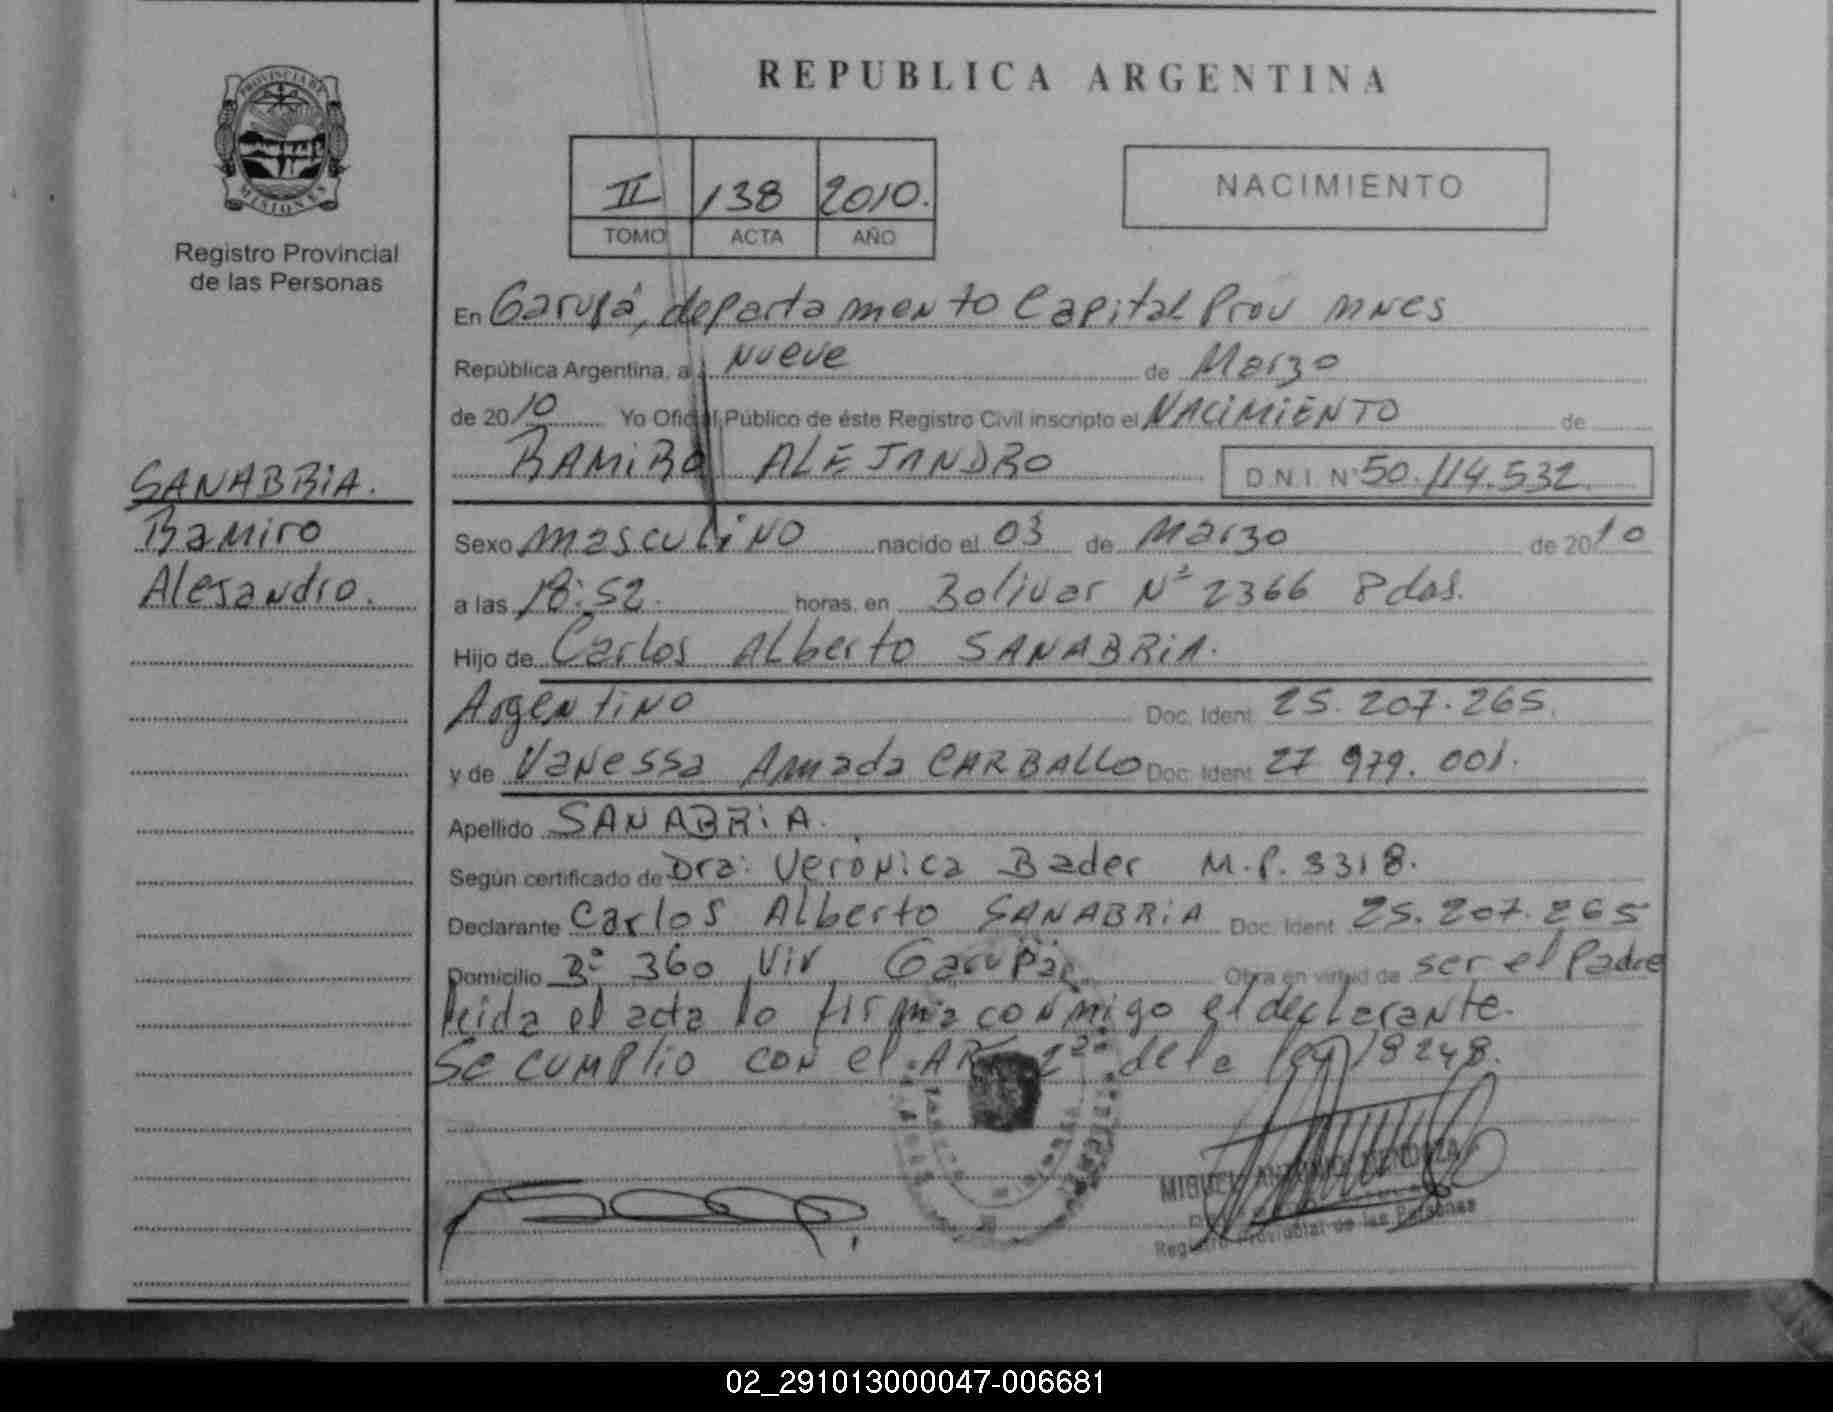 REPUBLICA ARGENTINA
PROVINCIA DE
MISIONES
Registro Provincial
de las Personas
II 138 2010.
TOMO ACTA AÑO
NACIMIENTO
En Garupá, departamento Capital Prov mnes
República Argentina, a Nueve de Marzo
de 2010 Yo Oficial Público de éste Registro Civil inscripto el NACIMIENTO de
RAMIRO ALEJANDRO D.N.I. Nº 50.114.532.
SANABRIA.
Ramiro
Alejandro.
Sexo masculino nacido el 03 de Marzo de 2010
a las 18:52. horas, en Bolivar Nº 2366 Pdas.
Hijo de Carlos Alberto SANABRIA.
Argentino Doc. Ident. 25.207.265.
y de Vanessa Amada CARBALLO Doc. Ident. 27 979.001.
Apellido SANABRIA.
Según certificado de Dra: Verónica Bader M.P. 3318.
Declarante Carlos Alberto SANABRIA Doc. Ident. 25.207.265
Domicilio Bº 360 Viv Garupá. Obra en virtud de ser el Padre
leida el acta lo firma conmigo el declarante.
Se cumplio con el ART 2º de la ley 18248.
MIGUEL ANTONIO
Registro Provincial de las Personas
02_291013000047-006681